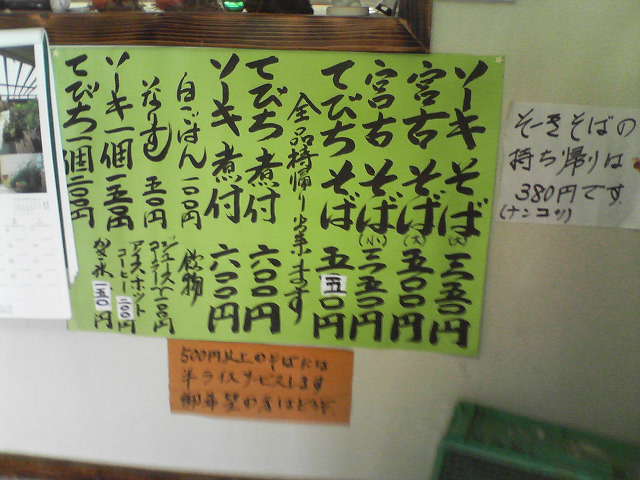 ソーキそば(大) 三五〇円
宮古そば(大) 五〇〇円
宮古そば(小) 三五〇円
てびちそば 五五〇円
全品持帰り出来ます
てびち煮付 六〇〇円
ソーキ煮付 六〇〇円
白ごはん 一〇〇円
飲物
いなりずし 五〇円
ジュース
コーラ 一〇〇円
ソーキ一個 一五〇円
アイスホット
コーヒー 二〇〇円
てびち一個 二〇〇円
かき氷 一五〇円
そーきそばの
持ち帰りは
380円です
(ナンコツ)
500円以上のそばには
半ライスサービスします
御希望の方はどうぞ